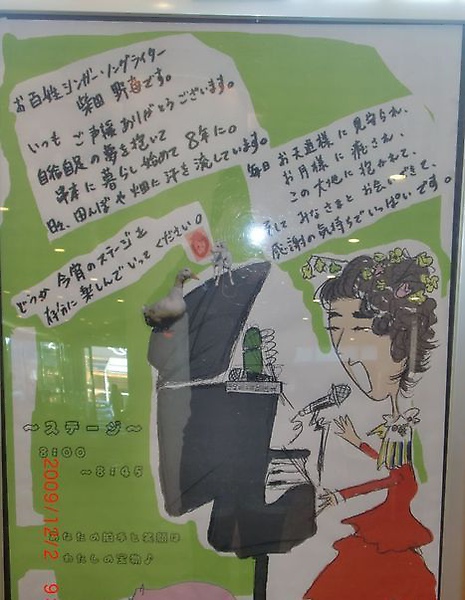 お百姓シンガーソングライター
柴田 野苺です。
いつも ご声援ありがとうございます。
自給自足の夢を抱いて
串本に暮らし始めて 8年に。
日々、田んぼや畑に汗を流しています。
毎日 お天道様に見守られ、
お月様に癒され、
この大地に抱かれて、
そして みなさまと お会いできて、
感謝の気持ちでいっぱいです。
どうか 今宵のステージを
楽しんでいってくださいね。
〜ステージ〜
8:00
〜8:45
あなたの拍手と笑顔は
わたしの宝物♪
2009/12/2 9